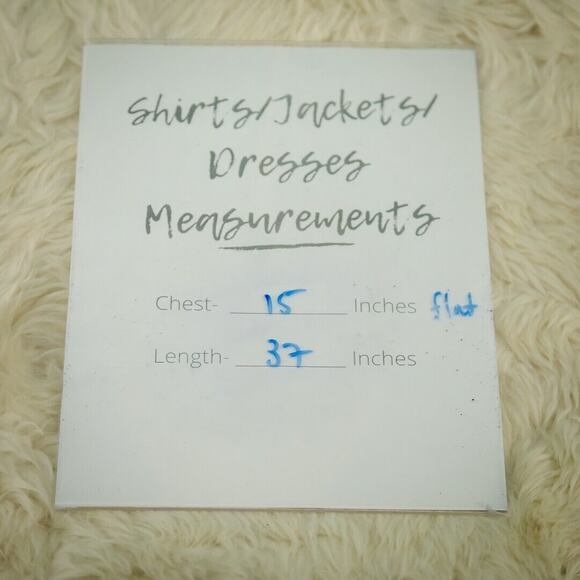 Shirts/Jackets/
Dresses
Measurements
Chest- 15 Inches flat
Length- 37 Inches